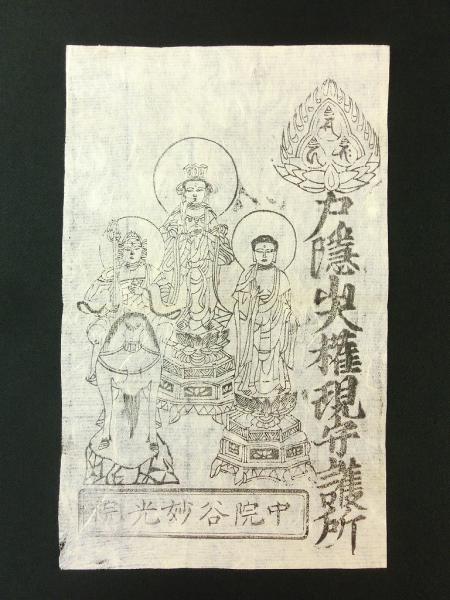 戸隱山大權現守護所
中院谷妙光院